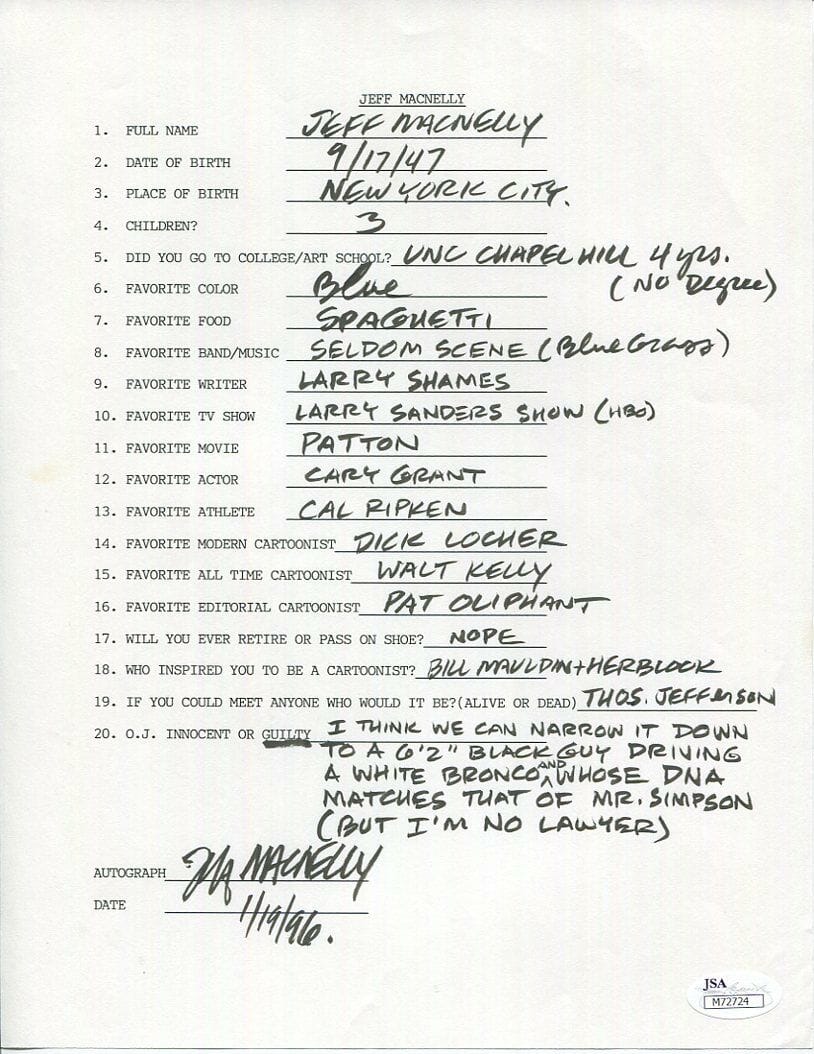 JEFF MACNELLY
1. FULL NAME JEFF MACNELLY
2. DATE OF BIRTH 9/17/47
3. PLACE OF BIRTH NEW YORK CITY.
4. CHILDREN? 3
5. DID YOU GO TO COLLEGE/ART SCHOOL? UNC CHAPEL HILL 4 yrs.
(NO Degree)
6. FAVORITE COLOR Blue
7. FAVORITE FOOD SPAGHETTI
8. FAVORITE BAND/MUSIC SELDOM SCENE (BlueGrass)
9. FAVORITE WRITER LARRY SHAMES
10. FAVORITE TV SHOW LARRY SANDERS SHOW (HBO)
11. FAVORITE MOVIE PATTON
12. FAVORITE ACTOR CARY GRANT
13. FAVORITE ATHLETE CAL RIPKEN
14. FAVORITE MODERN CARTOONIST DICK LOCHER
15. FAVORITE ALL TIME CARTOONIST WALT KELLY
16. FAVORITE EDITORIAL CARTOONIST PAT OLIPHANT
17. WILL YOU EVER RETIRE OR PASS ON SHOE? NOPE
18. WHO INSPIRED YOU TO BE A CARTOONIST? BILL MAULDIN + HERBLOCK
19. IF YOU COULD MEET ANYONE WHO WOULD IT BE?(ALIVE OR DEAD) THOS. JEFFERSON
20. O.J. INNOCENT OR GUILTY I THINK WE CAN NARROW IT DOWN
TO A 6'2" BLACK GUY DRIVING
A WHITE BRONCO AND WHOSE DNA
MATCHES THAT OF MR. SIMPSON
(BUT I'M NO LAWYER)
AUTOGRAPH Jeff MACNELLY
DATE 1/19/96.
JSA
M72724